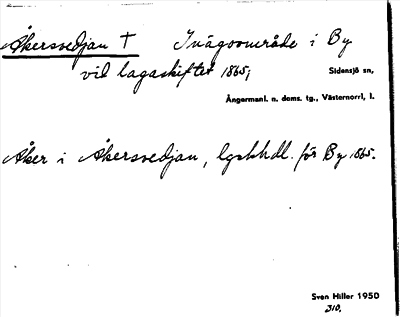 Åkersvedjan † Inägoområde i By
vid lagaskiftet 1865;
Sidensjö sn,
Ångermanl. n. doms. tg., Västernorrl, l.
Åker i Åkersvedjan, lgskhdl. för By 1865.
Sven Hiller 1950
310.